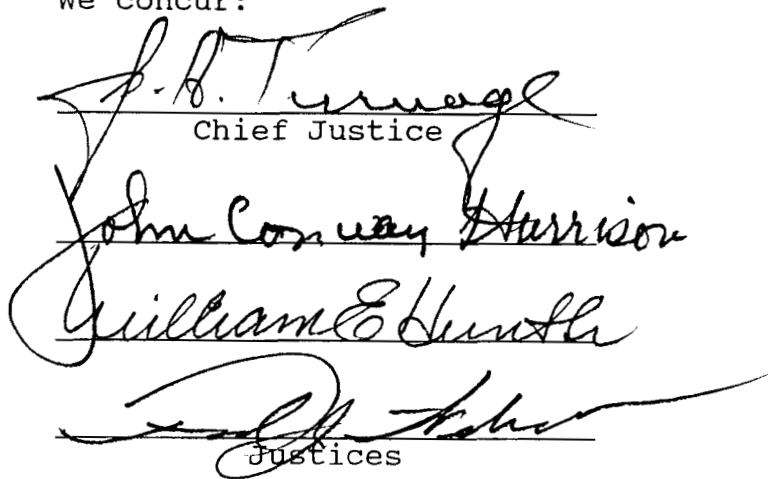 We concur:
J. A. Turnage
Chief Justice
John Conway Harrison
William E Hunter
Justices